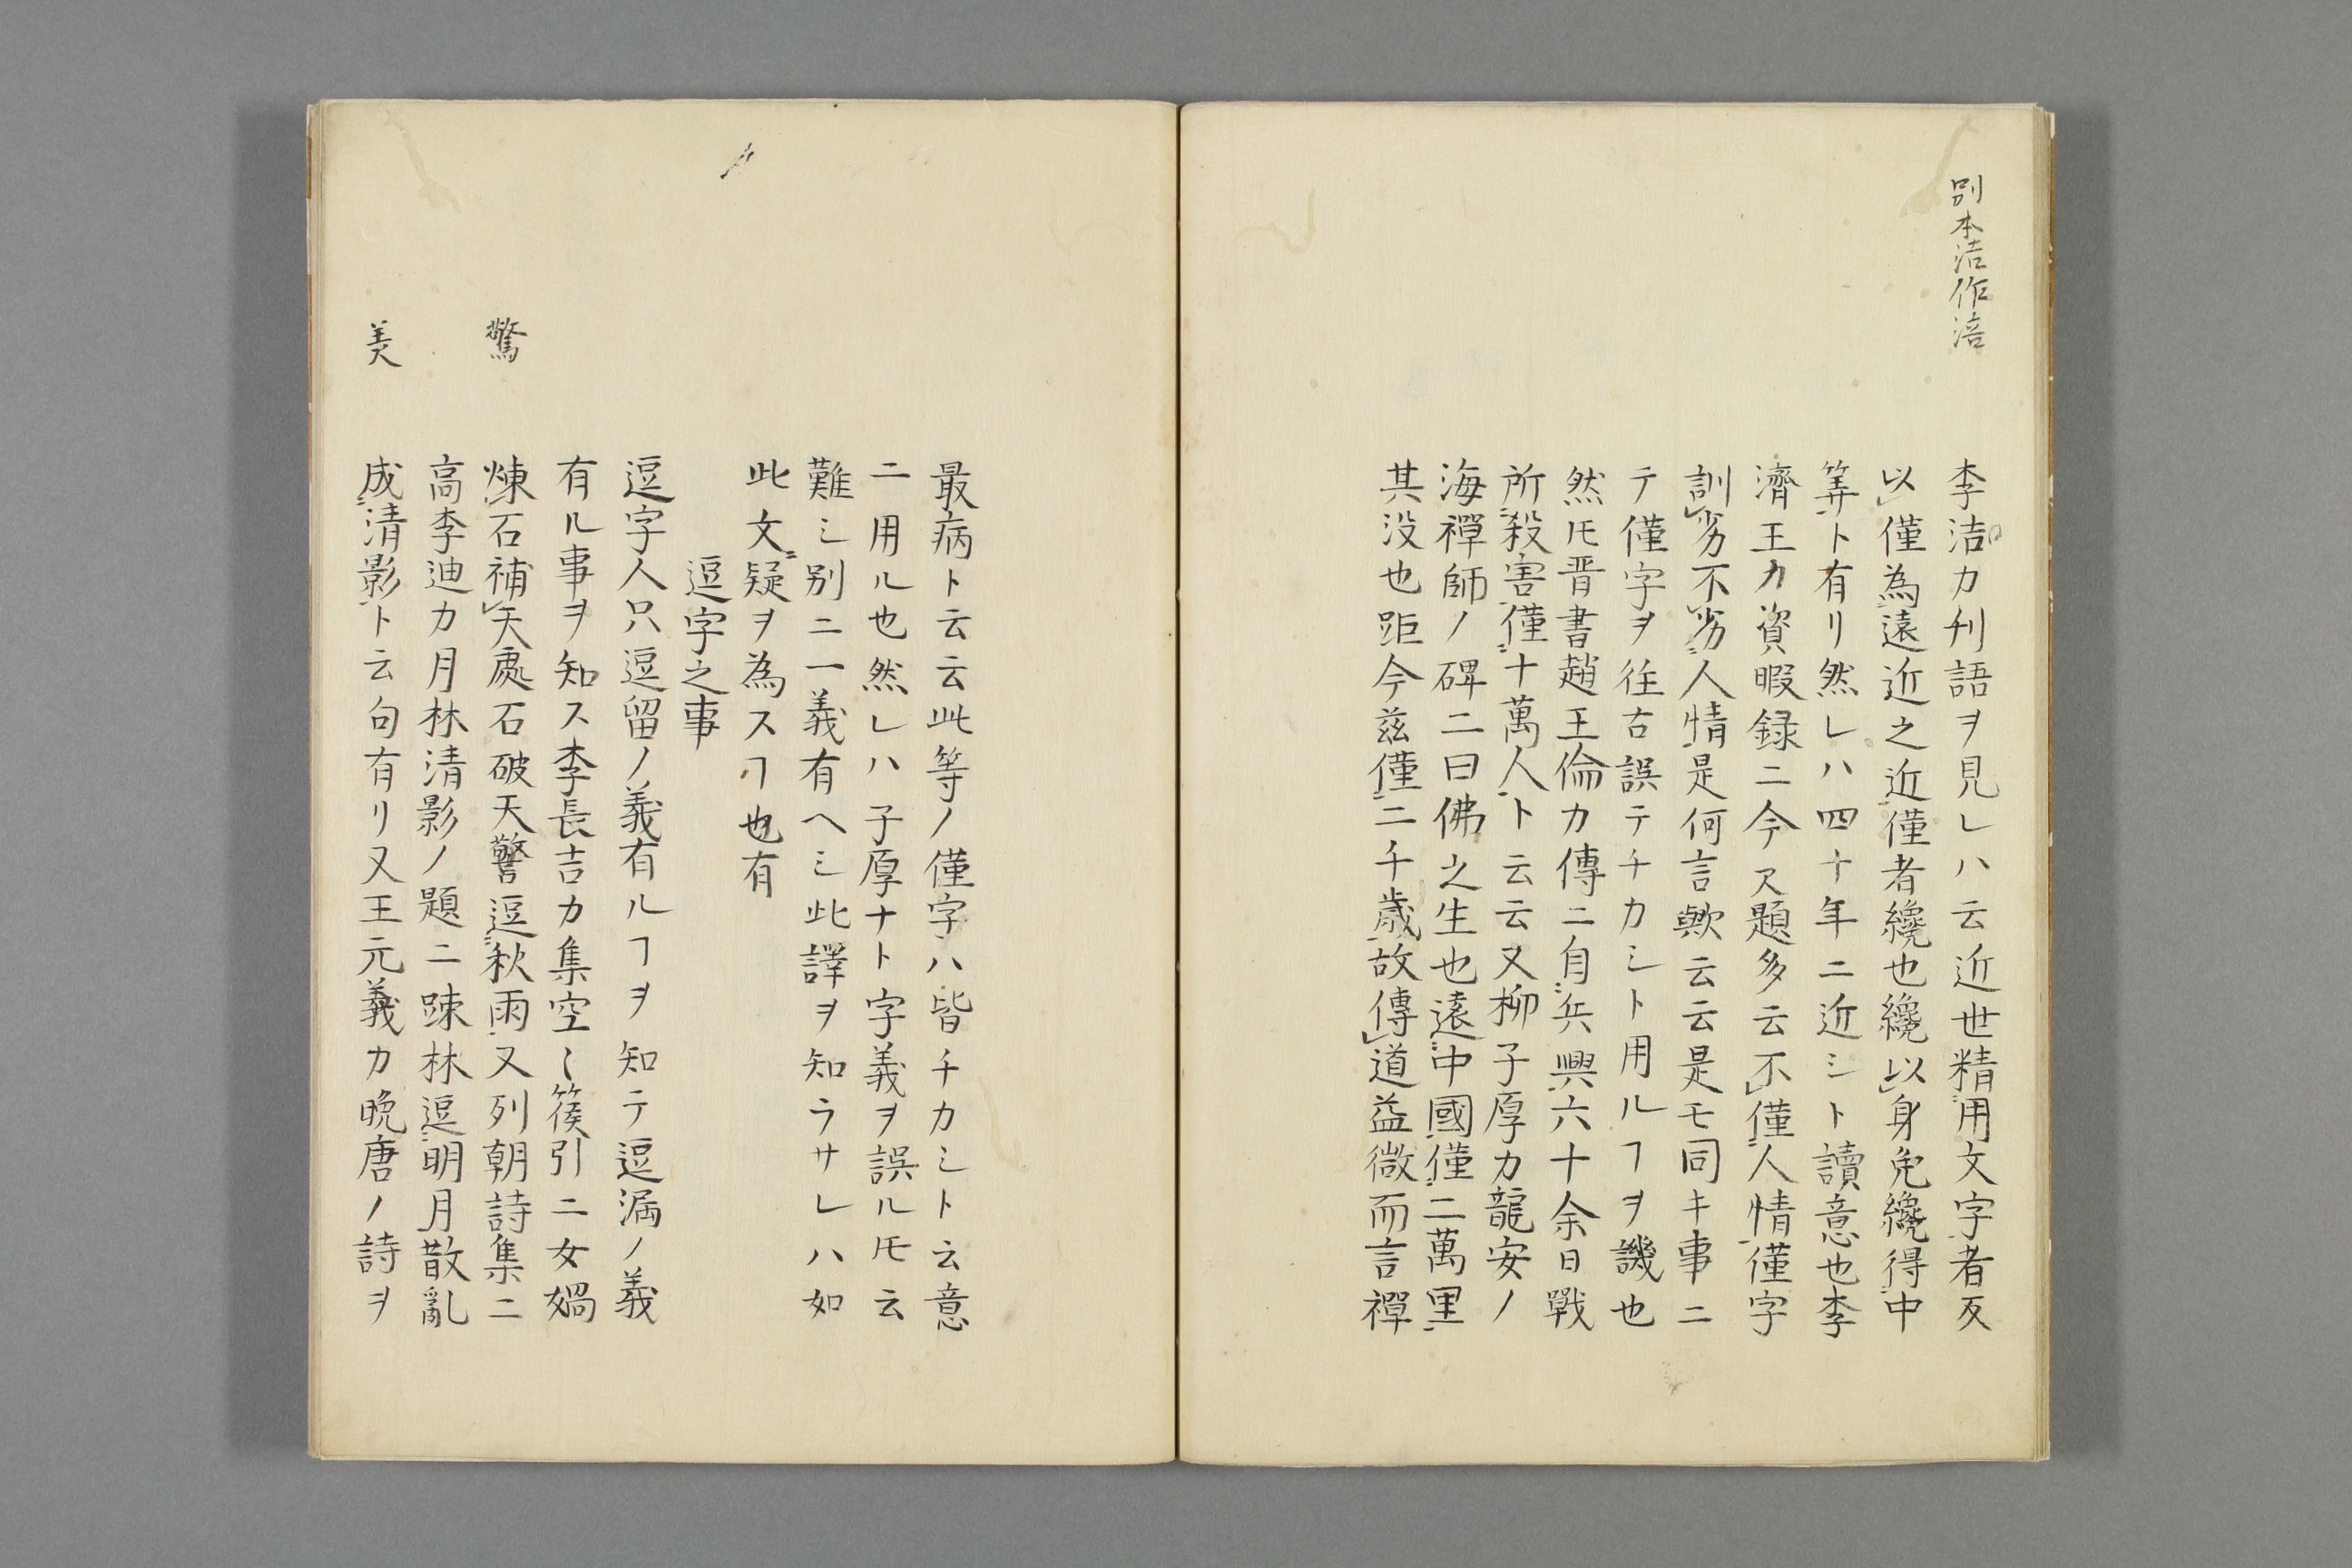 別本洁作涪
李洁カ刋語ヲ見レハ云近世精用文字者反
以僅為遠近之近僅者纔也纔以身免纔得中
筭ト有リ然レハ四十年ニ近シト讀意也李
濟王カ資暇録ニ今ス題多云不僅人情僅字
訓劣不劣人情是何言歟云云是モ同キ事ニ
テ僅字ヲ往古誤テチカシト用ルヿヲ譏也
然𪜈晋書趙王倫カ傳ニ自兵興六十余日戰
所殺害僅十萬人ト云云又柳子厚カ龍安ノ
海禪師ノ碑ニ曰佛之生也遠中國僅二萬里
其没也距今茲僅二千歳故傳道益微而言禪
最病ト云云此等ノ僅字ハ皆チカシト云意
ニ用ル也然レハ子厚ナト字義ヲ誤ル𪜈云
難シ別ニ一義有ヘシ此譯ヲ知ラサレハ如
此文疑ヲ為スヿ也有
逗字之事
逗字人只逗留ノ義有ルヿヲ知テ逗漏ノ義
有ル事ヲ知ス李長吉カ集空〻篌引ニ女媧
驚
煉石補天處石破天警逗秋雨又列朝詩集ニ
高李迪カ月林清影ノ題ニ踈林逗明月散亂
美
成清影ト云句有リ又王元義カ晩唐ノ詩ヲ